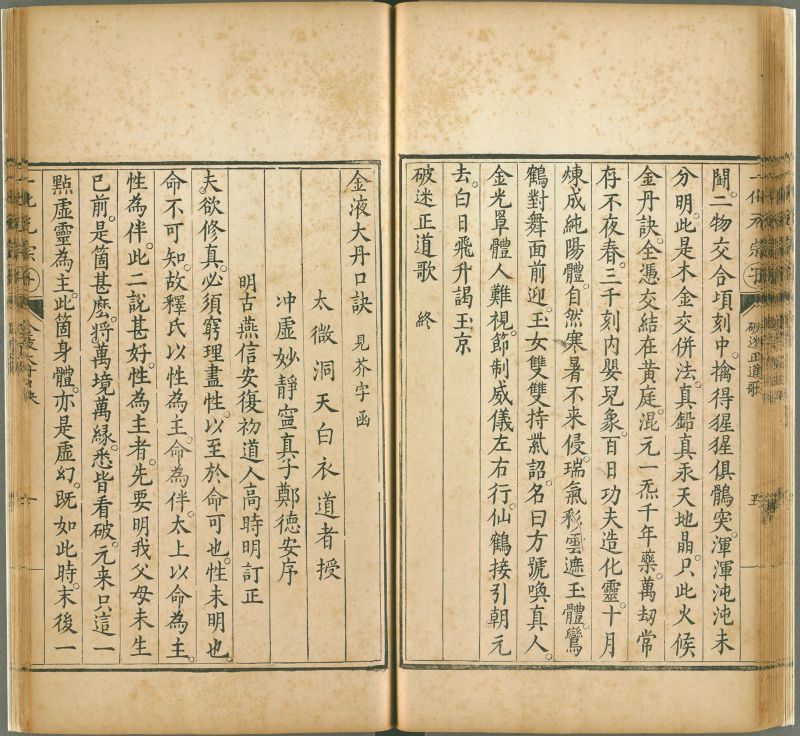 閫二物交合頃刻中擒得猩猩俱鶻突渾渾沌沌未
分明此是木金交併法真鉛真汞天地晶只此火候
金丹訣全憑交結在黃庭混元一炁千年藥萬劫常
存不夜春三千刻内嬰兒象百日功夫造化靈十月
煉成純陽體自然寒暑不来侵瑞氣彩雲遮玉體鸞
鶴對舞面前迎玉女雙雙持紫詔名曰方號喚真人
金光罩體人難視節制威儀左右行仙鶴接引朝元
去白日飛升謁玉京
破迷正道歌　終
破迷正道歌
五
金液大丹口訣　見芥字函
太微洞天白衣道者授
冲虛妙靜寍真子鄭德安序
明古燕信安復初道人高時明訂正
夫欲修真必須窮理盡性以至於命可也性未明也
命不可知故釋氏以性為主命為伴太上以命為主
性為伴此二說甚好性為主者先要明我父母未生
已前是箇甚麼將萬境萬緣悉皆看破元来只這一
點虛靈為主此箇身體亦是虛幻既如此時末後一
金液大丹口訣
一